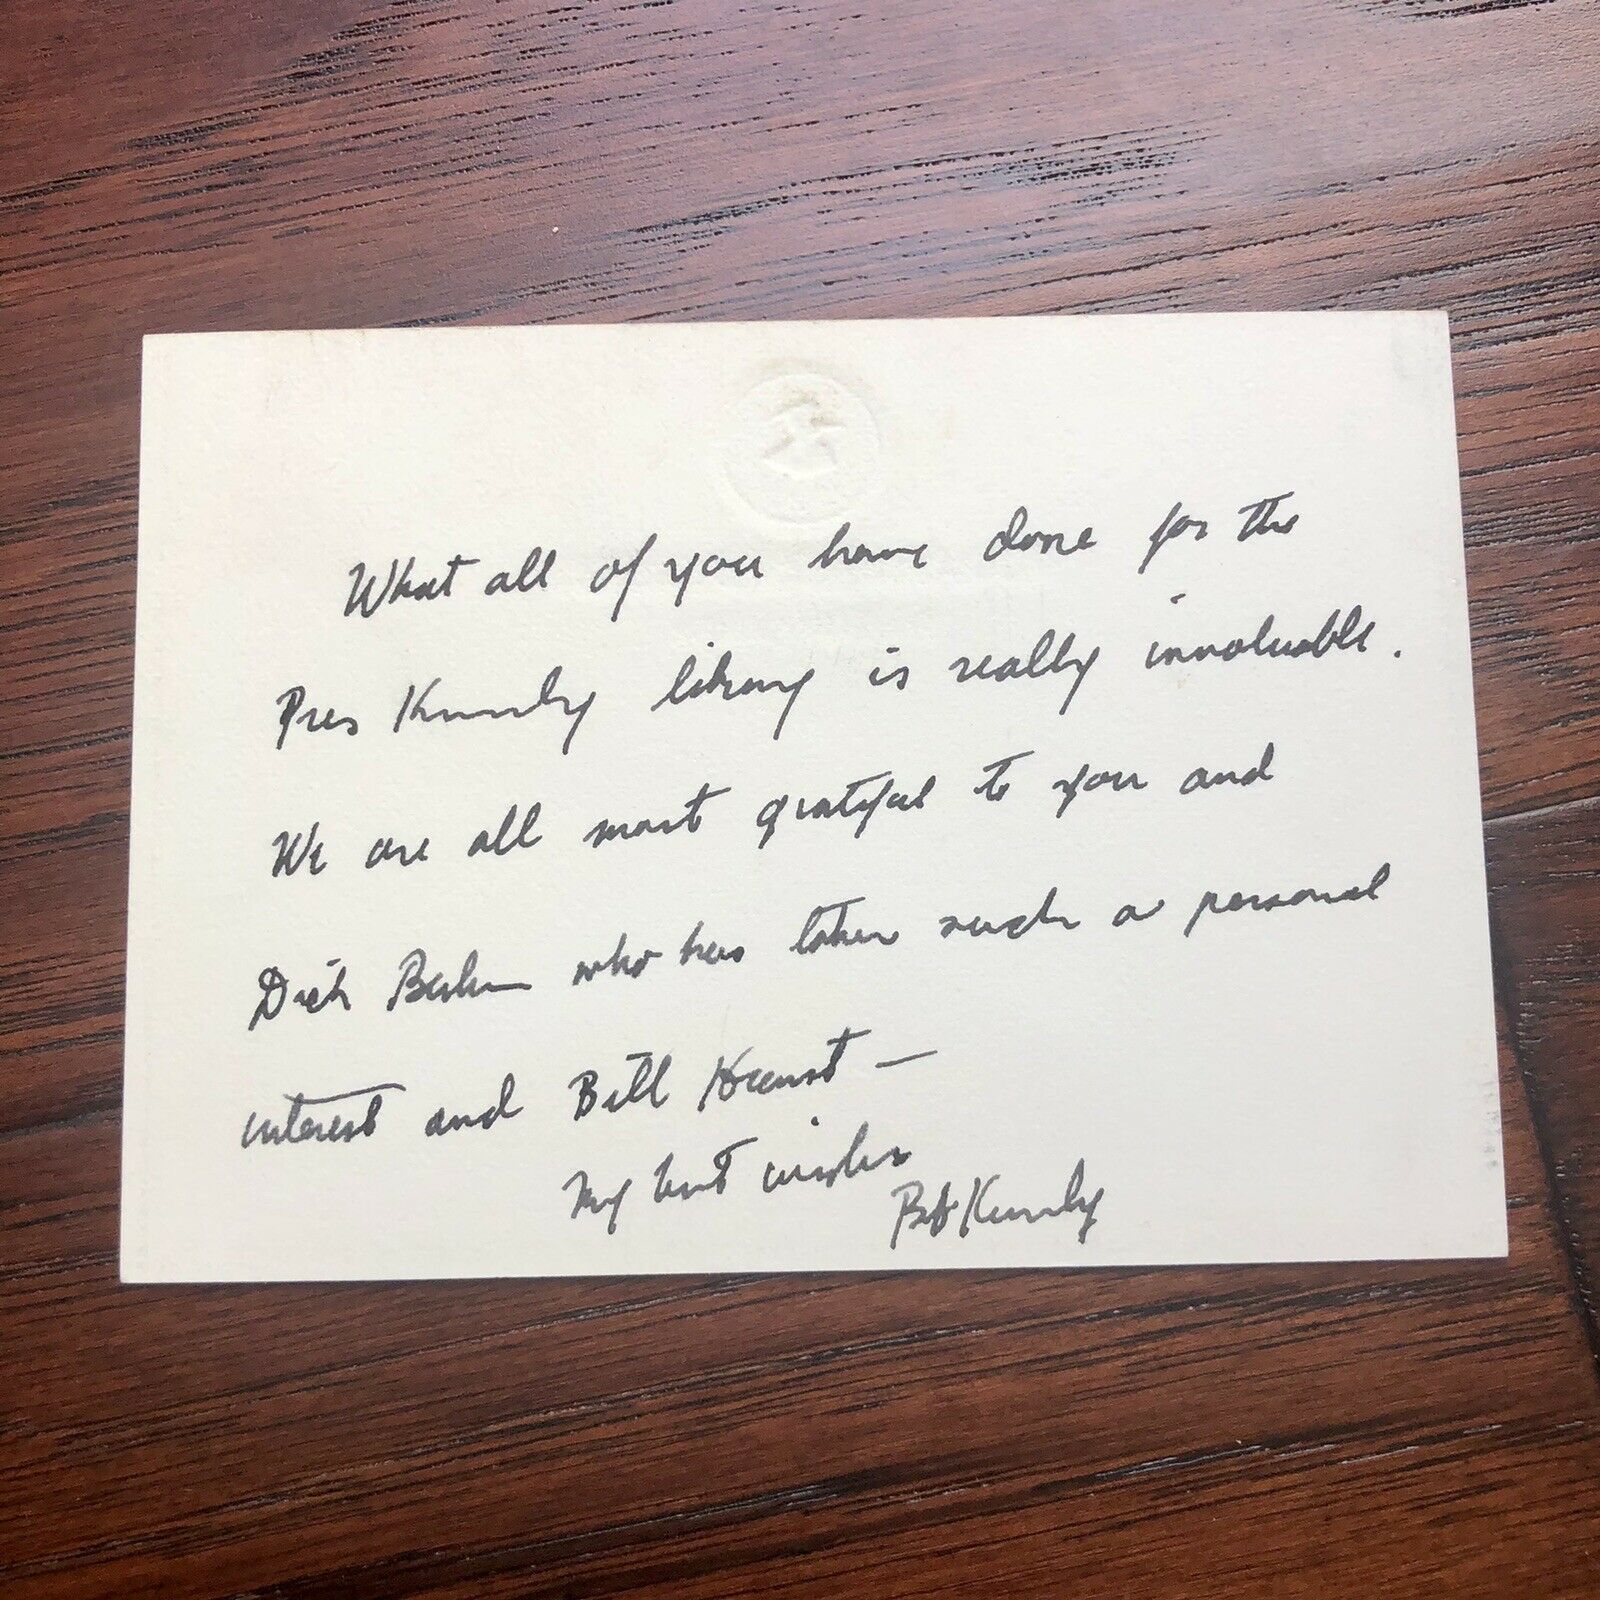 What all of you have done for the
Pres Kennedy library is really invaluable.
We are all most grateful to you and
Dick Berlin who has taken such a personal
interest and Bill Hearst —
My best wishes
Bob Kennedy